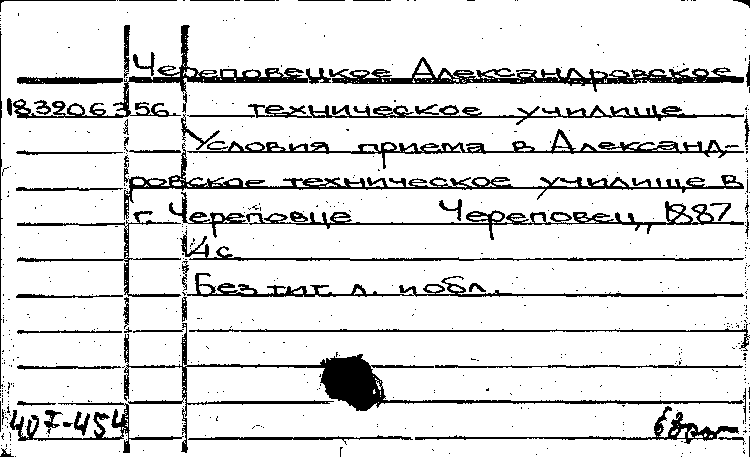 Череповецкое Александровское
18.3206356. техническое училище
Условия приема в Александ-
ровское техническое училище в
г. Череповце Череповец, 1887.
4 с.
Без тит. л. и обл.